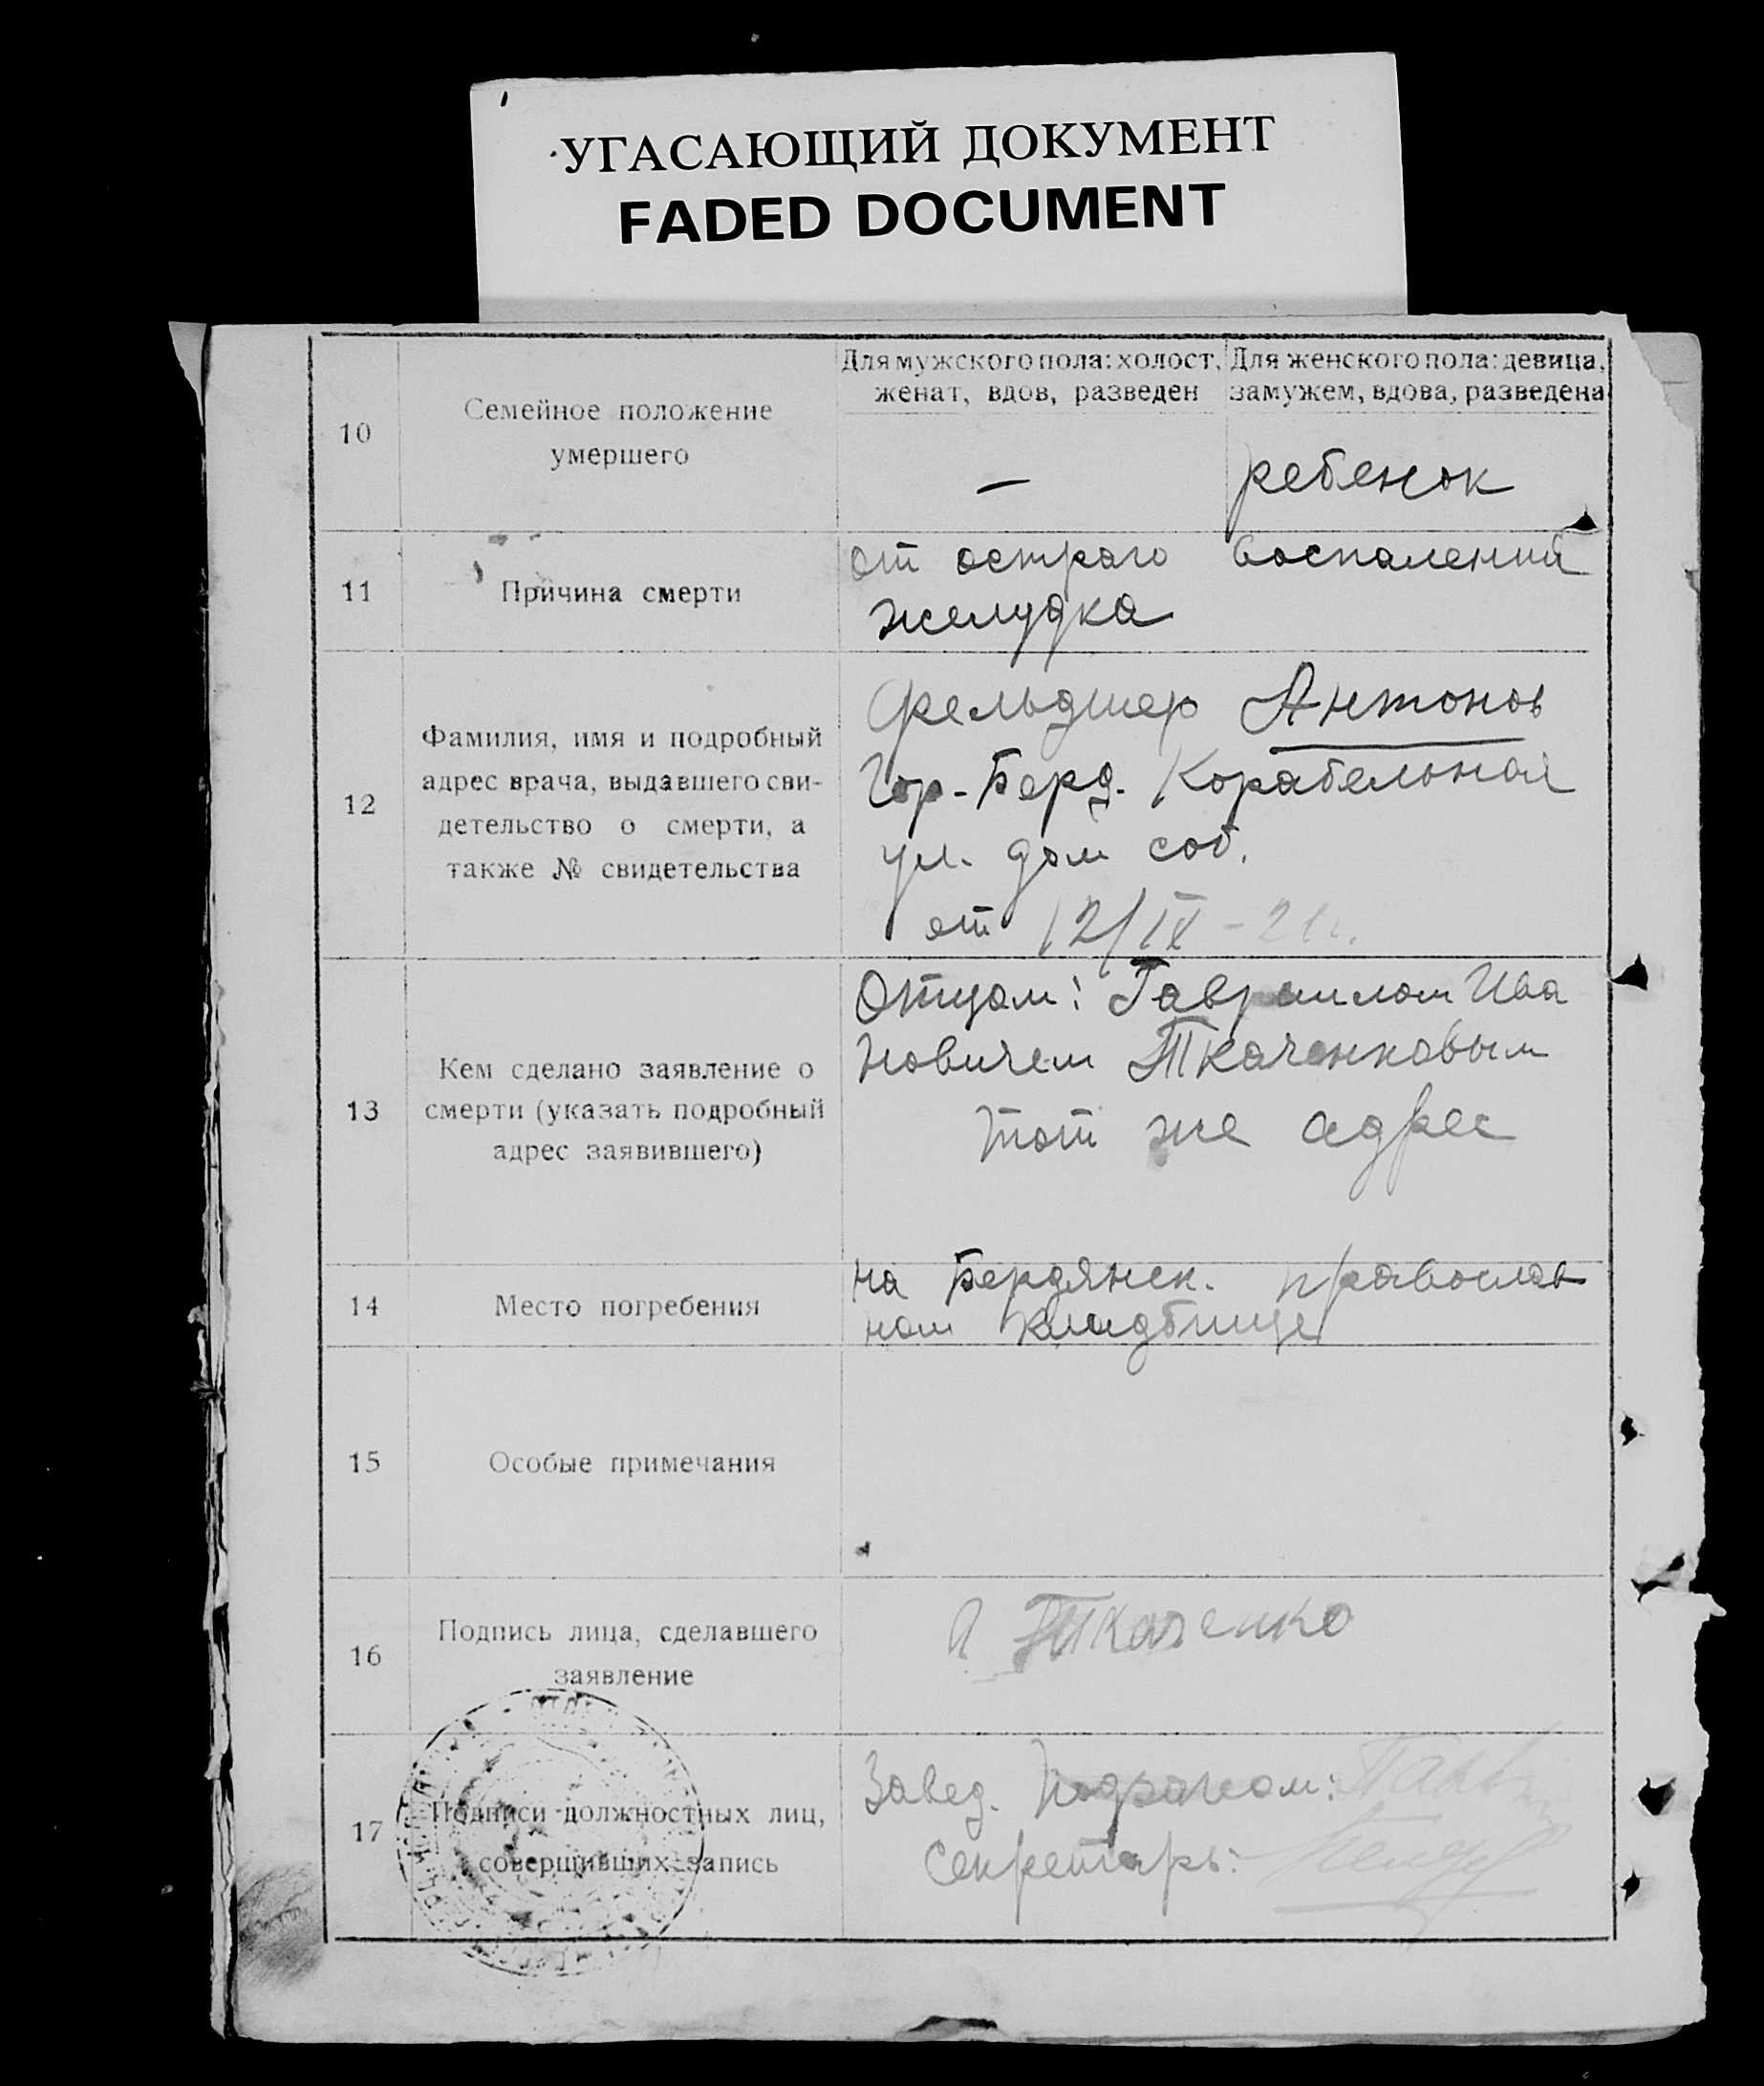 УГАСАЮЩИЙ ДОКУМЕНТ
FADED DOCUMENT
10
Семейное положение
умершего
Для мужского пола: холост,
женат, вдов, разведен
Для женского пола: девица,
замужем, вдова, разведена
—
ребенок
11
Причина смерти
от острого воспаления
желудка
12
Фамилия, имя и подробный
адрес врача, выдавшего сви-
детельство о смерти, а
также № свидетельства
Фельдшер Антонов
Гор-Берд. Корабельной
ул. дом соб.
от 12/IX-21г.
13
Кем сделано заявление о
смерти (указать подробный
адрес заявившего)
Отцом: Гавриилом Ива
новичем Ткаченковым
тот же адрес
14
Место погребения
на Бердянск. православ
ном кладбище
15
Особые примечания
16
Подпись лица, сделавшего
заявление
Ткаченко
17
Подписи должностных лиц,
совершивших запись
Завед. Подотделом:
Секретарь: